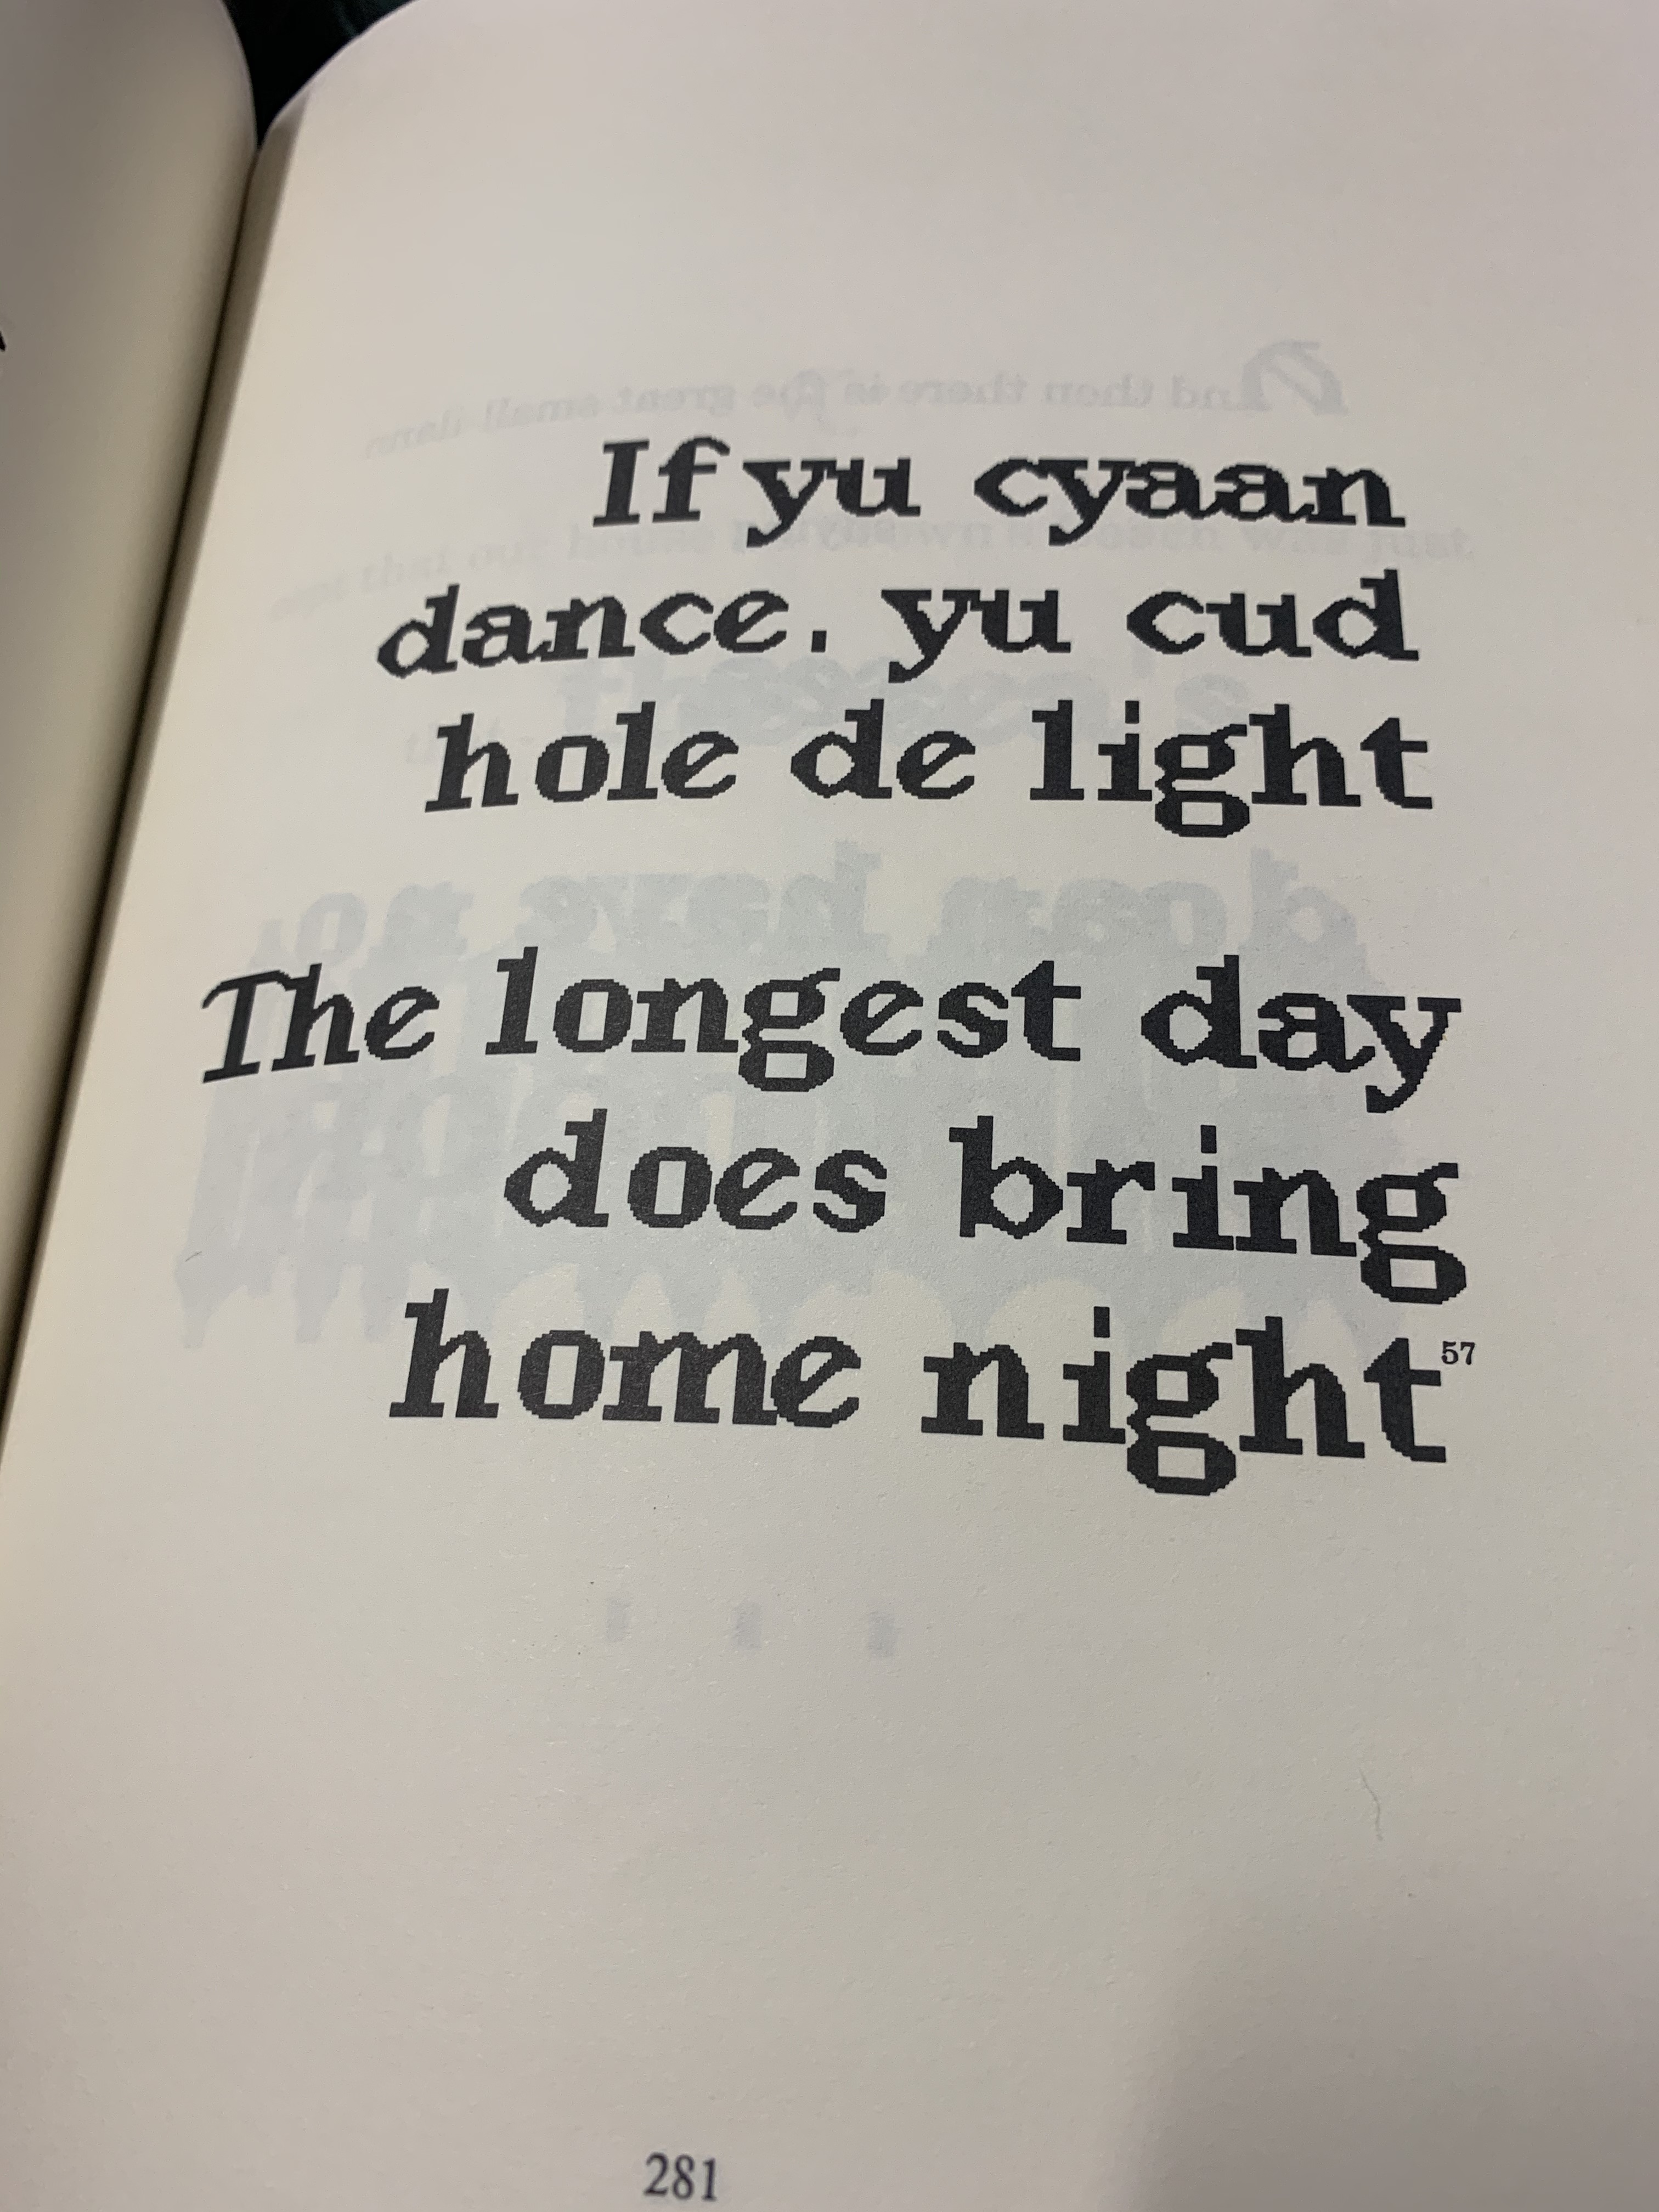 If yu cyaan
dance. yu cud
hole de light
The longest day
does bring
home night⁵⁷
281